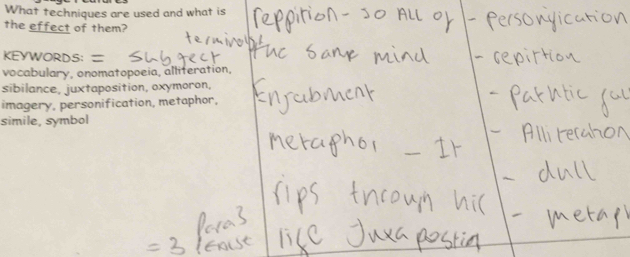 What techniques are used and what is
the effect of them?
KEYWORDS: = subject
vocabulary, onomatopoeia, alliteration,
sibilance, juxtaposition, oxymoron,
imagery, personification, metaphor,
simile, symbol
= 3 Para3
reppition - so All of
the same mind
Enjabment
metaphor - It
rips through his
like Juxa postin
- personification
- repirtion
- Pathtic
- Alliteration
- dull
- metaph